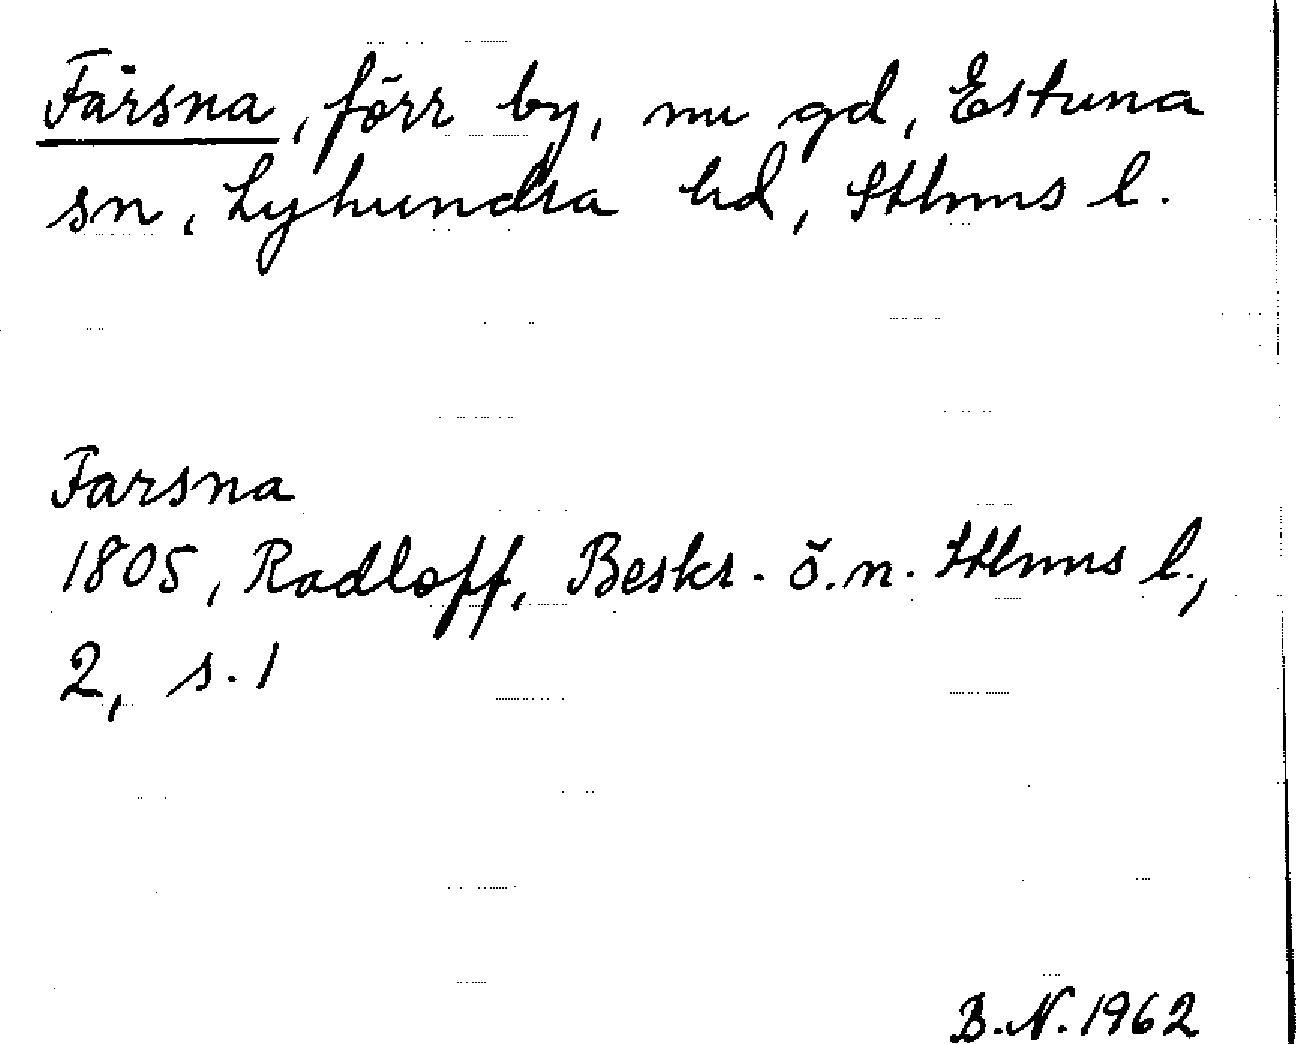 Färsna, förr by, nu gd, Estuna
sn, Lyhundra hd, Sthlms l.
Farsna
1805, Radloff, Beskr. ö. n. Sthlms l.,
2, s. 1
B.N. 1962